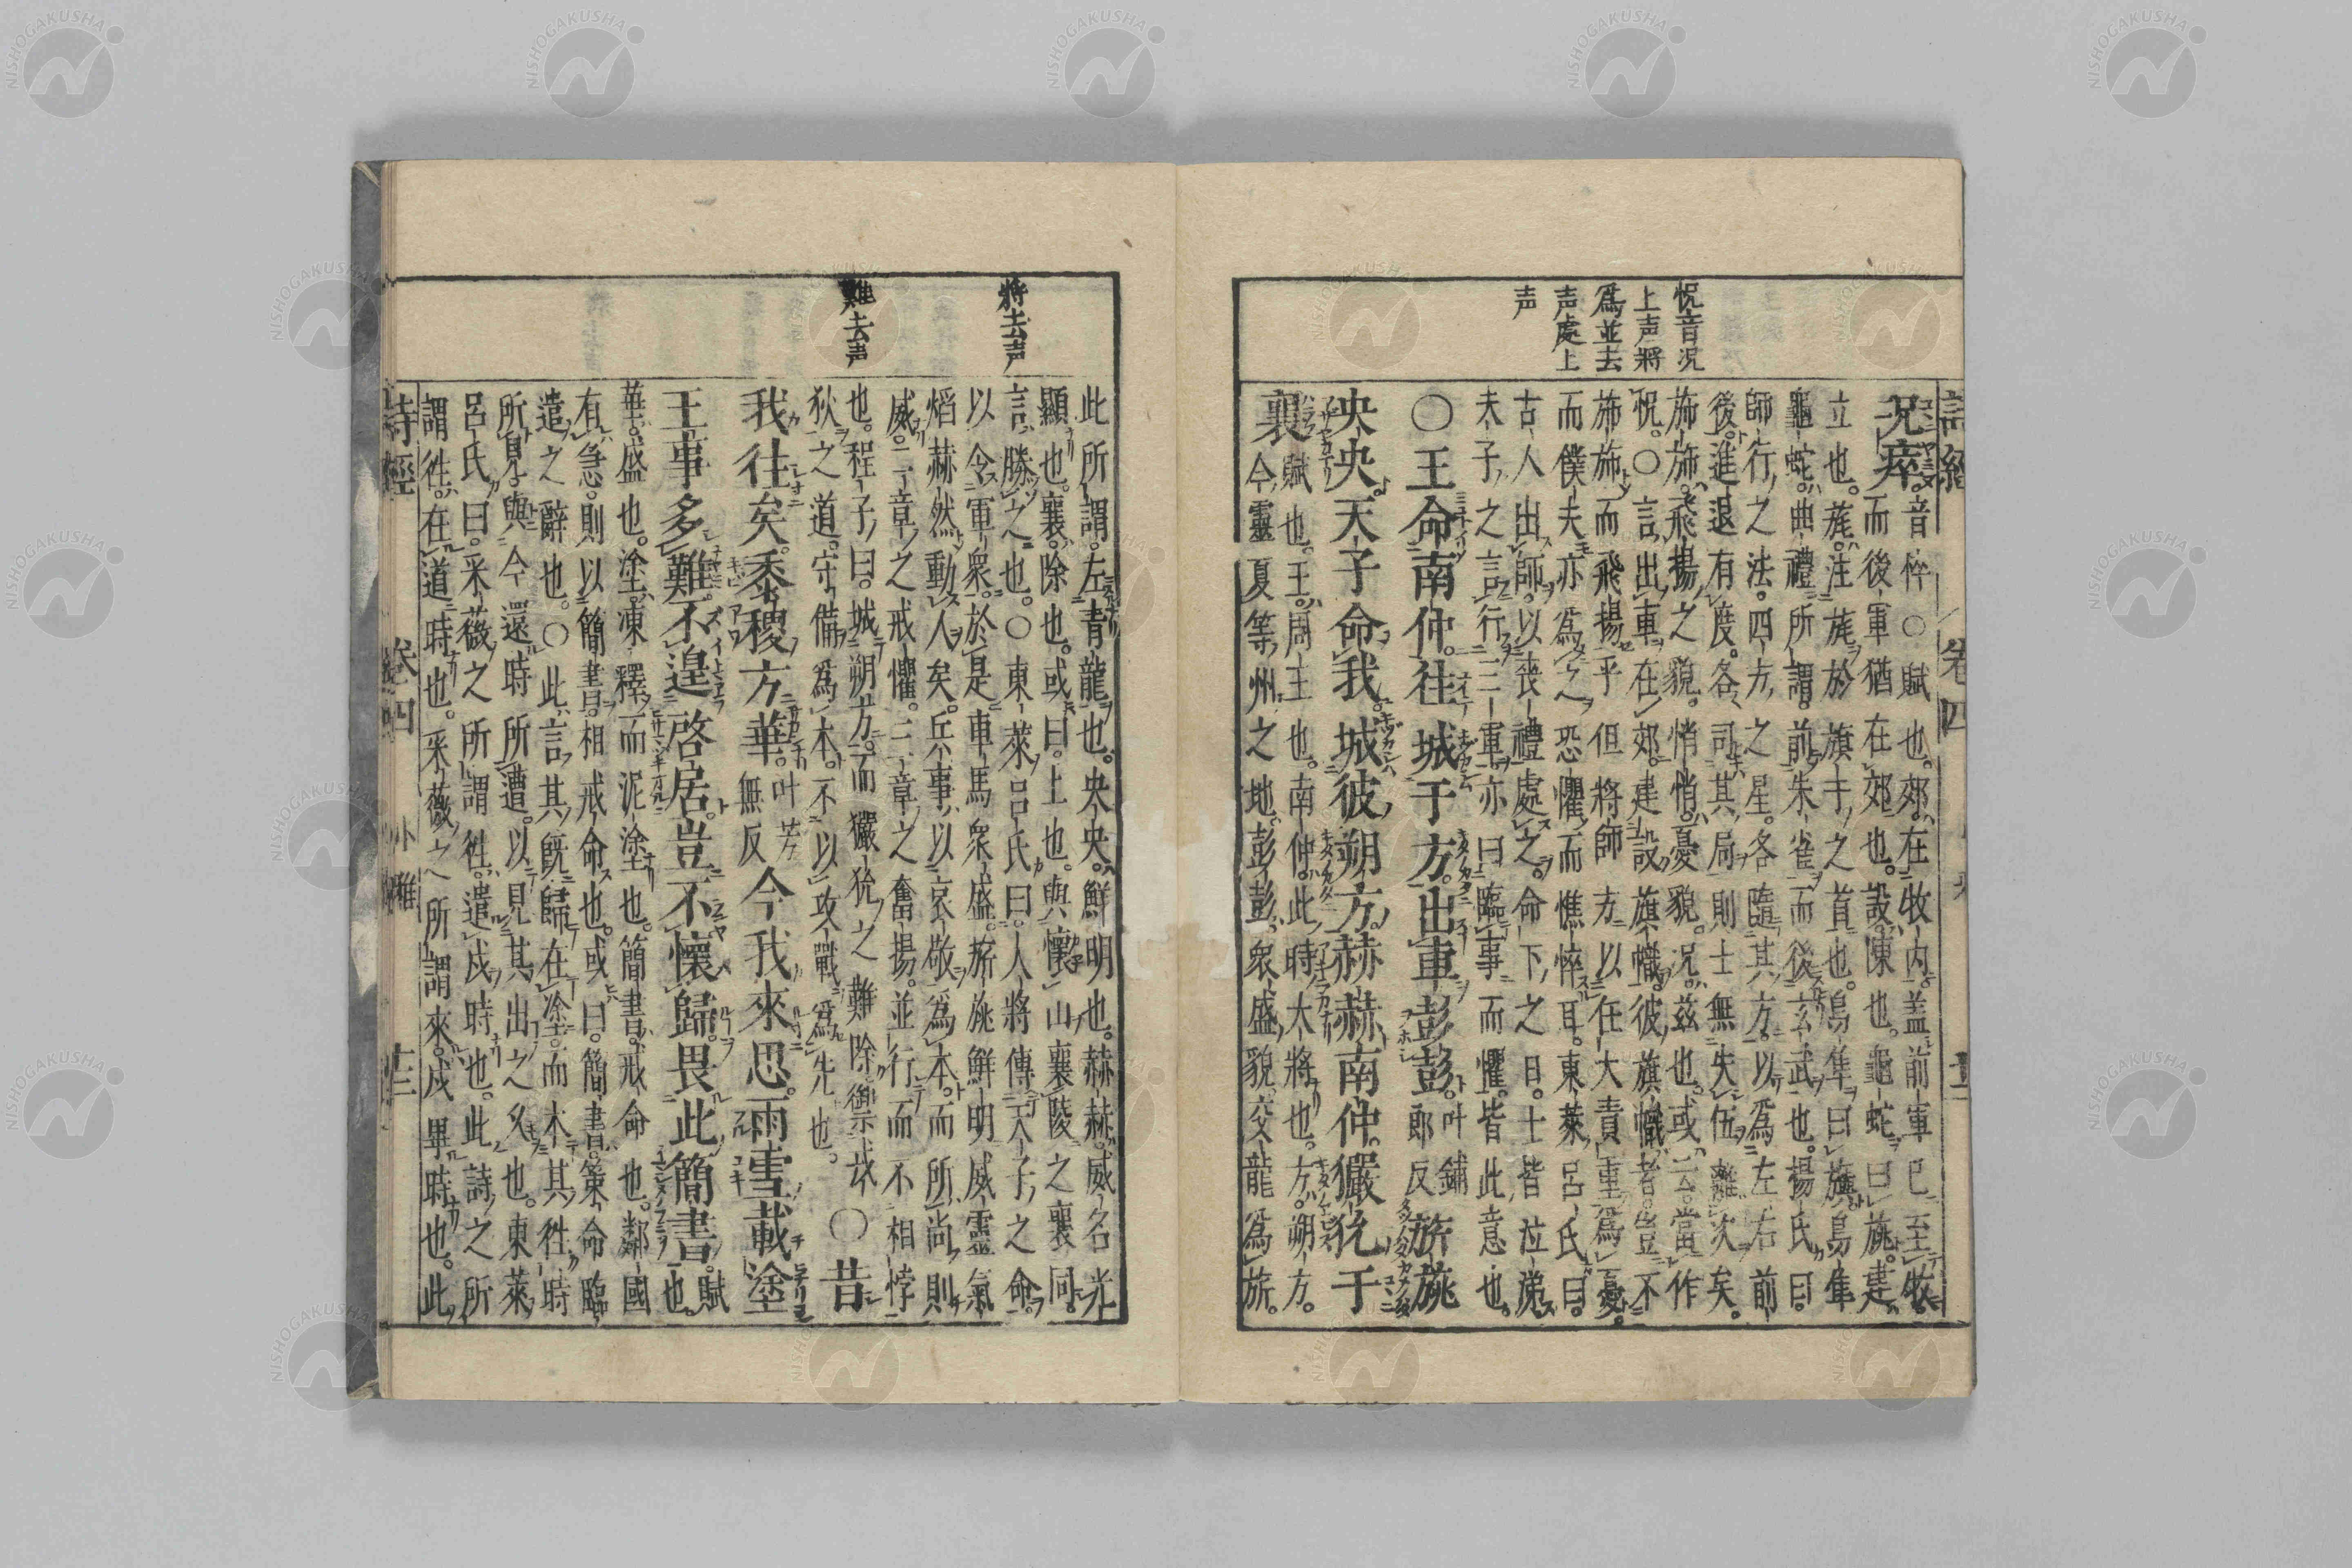 怳音況
上声將
爲並去
声處上
声
況瘁。音悴○賦也。郊在牧内。盖前軍已至牧
而後軍猶在郊也。設陳也。龜蛇曰旐。建
立也。旄注旄於旗干之首也。鳥隼曰旟。鳥隼
龜蛇。曲禮所謂前朱雀而後玄武也。楊氏曰。
師行之法。四方之星。各隨其方。以爲左右前
後。進退有度。各司其局。則士無失伍離次矣。
旆旆。飛揚之貌。悄悄。憂貌。況。茲也。或云當作
怳。○言出車在郊。建設旗幟。彼旗幟者。豈不
旆旆而飛揚乎。但將師方以任大責重爲憂。
而僕夫亦爲之恐懼而憔悴耳。東萊呂氏曰。
古人出師。以喪禮處之。命下之日。士皆泣涕。
夫子之言行三軍。亦曰臨事而懼。皆此意也。
○王命南仲。往城于方。出車彭彭。叶鋪郎反旂旐
央央。天子命我。城彼朔方。赫赫南仲。玁狁于
襄。賦也。王。周王也。南仲。此時大將也。方。朔方。
今靈夏等州之地。彭彭。衆盛貌。交龍爲旂。
詩經 卷四
將去声
難去声
此所謂左青龍也。央央。鮮明也。赫赫。威名光
顯也。襄。除也。或曰。上也。與懷山襄陵之襄同。
言勝之也。○東萊呂氏曰。大將傳天子之命。
以令軍衆。於是車馬衆盛。旂旐鮮明。威靈氣
焰赫然動人矣。兵事以哀敬爲本。而所尚則
威。二章之戒懼。三章之奮揚。並行而不相悖
也。程子曰。城朔方。而玁狁之難除。禦戎
狄之道。守備爲本。不以攻戰爲先也。
○昔
我往矣。黍稷方華。叶芳無反今我來思。雨雪載塗。
王事多難。不遑啓居。豈不懷歸。畏此簡書。賦也。
華。盛也。塗。凍釋而泥塗也。簡書。戒命也。鄰國
有急。則以簡書相戒命也。或曰。簡書。策命臨
遣之辭也。○此言其既歸在塗。而本其往時
所見與今還時所遭。以見其出之久也。東萊
呂氏曰。采薇之所謂往。遣戍時也。此詩之所
謂往。在道時也。采薇之所謂來。戍畢時也。此
詩經 卷四 小雅 十三